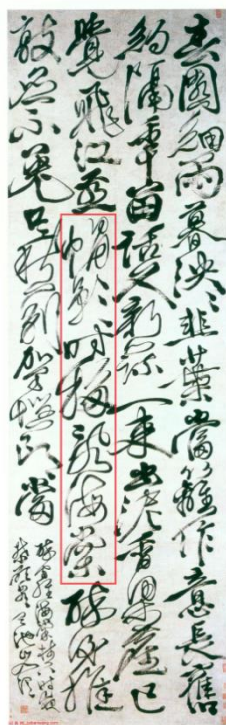 春園細雨暮泱泱韭葉當籬作意長舊
約隔年留話久新蔬一束出泥香梁塵已
覺飛江燕帽影時移亂海棠醉後推
敲不免只愁別駕惱郎當
天池山人